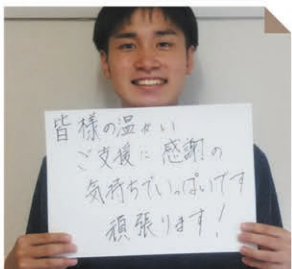 皆様の温かい
ご支援に感謝の
気持ちでいっぱいです
頑張ります!